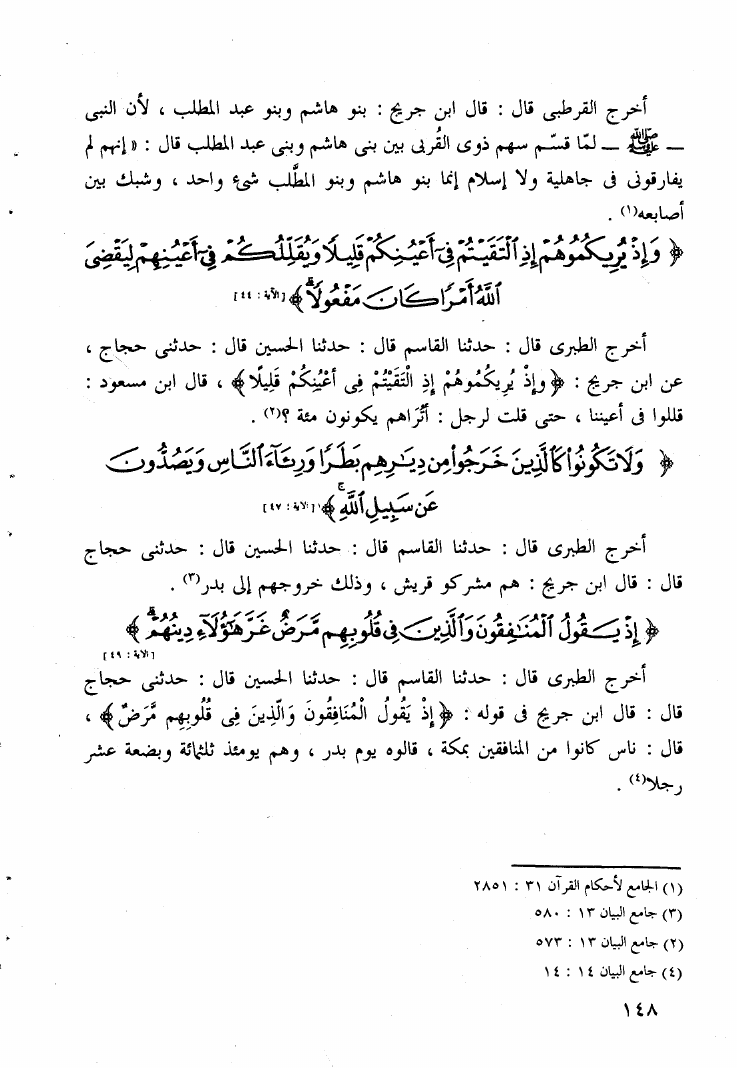 أخرج القرطبى قال : قال ابن جريج : بنو هاشم وبنو عبد المطلب ، لأن النبى
ــ ﷺ ــ لمّا قسّم سهم ذوى القُربى بين بنى هاشم وبنى عبد المطلب قال : « إنهم لم
يفارقونى فى جاهلية ولا إسلام إنما بنو هاشم وبنو المطَّلب شىء واحد ، وشبك بين
أصابعه(١) .
﴿ وَإِذْ يُرِيكُمُوهُمْ إِذِ ٱلْتَقَيْتُمْ فِىٓ أَعْيُنِكُمْ قَلِيلًا وَيُقَلِّلُكُمْ فِىٓ أَعْيُنِهِمْ لِيَقْضِىَ
ٱللَّهُ أَمْرًا كَانَ مَفْعُولًاۗ ﴾ [الآية : ٤٤]
أخرج الطبرى قال : حدثنا القاسم قال : حدثنا الحسين قال : حدثنى حجاج ،
عن ابن جريج : ﴿ وإِذْ يُرِيكُمُوهُمْ إِذِ الْتَقَيْتُمْ فِى أَعْيُنِكُمْ قَلِيلًا ﴾ ، قال ابن مسعود :
قللوا فى أعيننا ، حتى قلت لرجل : أتُرَاهم يكونون مئة ؟(٢) .
﴿ وَلَا تَكُونُوا۟ كَٱلَّذِينَ خَرَجُوا۟ مِن دِيَـٰرِهِم بَطَرًا وَرِئَآءَ ٱلنَّاسِ وَيَصُدُّونَ
عَن سَبِيلِ ٱللَّهِۚ ﴾ [الآية : ٤٧]
أخرج الطبرى قال : حدثنا القاسم قال : حدثنا الحسين قال : حدثنى حجاج
قال : قال ابن جريج : هم مشركو قريش ، وذلك خروجهم إلى بدر(٣) .
﴿ إِذْ يَقُولُ ٱلْمُنَـٰفِقُونَ وَٱلَّذِينَ فِى قُلُوبِهِم مَّرَضٌ غَرَّ هَـٰٓؤُلَآءِ دِينُهُمْۗ ﴾
[الآية : ٤٩]
أخرج الطبرى قال : حدثنا القاسم قال : حدثنا الحسين قال : حدثنى حجاج
قال : قال ابن جريج فى قوله : ﴿ إِذْ يَقُولُ الْمُنَافِقُونَ وَالَّذِينَ فِى قُلُوبِهِم مَّرَضٌ ﴾ ،
قال : ناس كانوا من المنافقين بمكة ، قالوه يوم بدر ، وهم يومئذ ثلثمائة وبضعة عشر
رجلا(٤) .
(١) الجامع لأحكام القرآن ٣١ : ٢٨٥١
(٣) جامع البيان ١٣ : ٥٨٠
(٢) جامع البيان ١٣ : ٥٧٣
(٤) جامع البيان ١٤ : ١٤
١٤٨